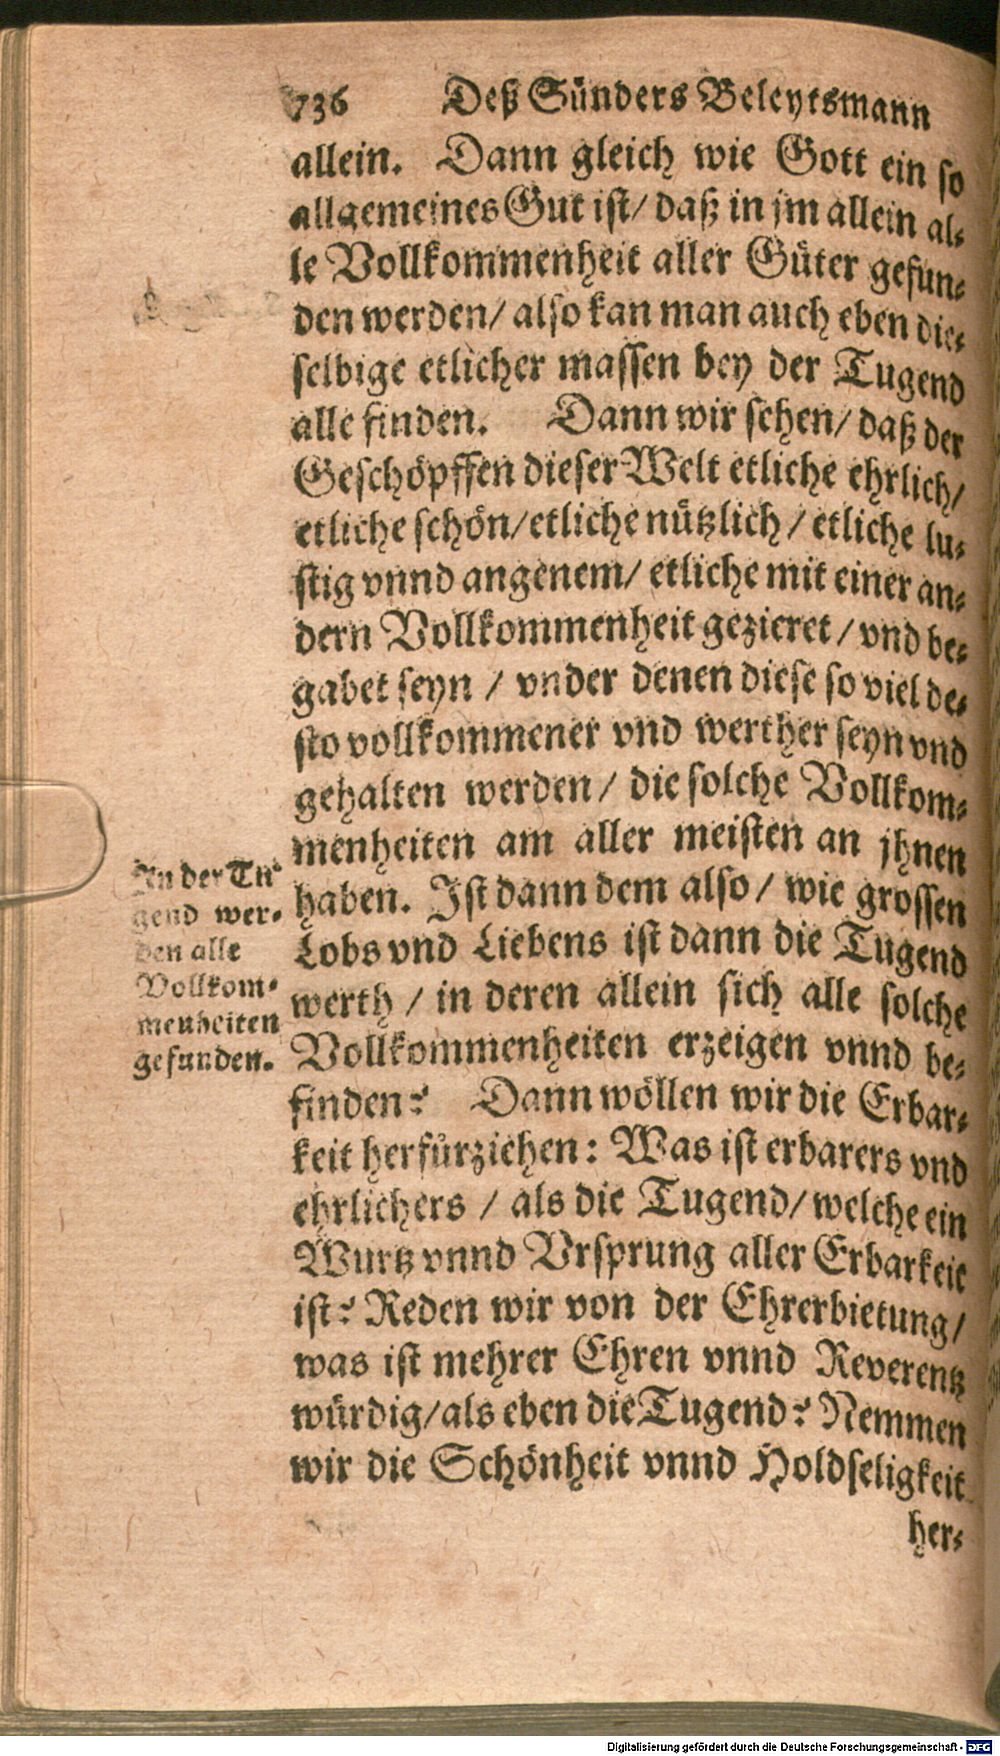 736 Deß Sünders Beleytsmann
allein. Dann gleich wie Gott ein so
allgemeines Gut ist/ daß in jm allein al-
le Vollkommenheit aller Güter gefun-
den werden/ also kan man auch eben die-
selbige etlicher massen bey der Tugend
alle finden. Dann wir sehen/ daß der
Geschöpffen dieser Welt etliche ehrlich/
etliche schön/ etliche nützlich/ etliche lu-
stig vnnd angenem/ etliche mit einer an-
dern Vollkommenheit gezieret/ vnd be-
gabet seyn/ vnder denen diese so viel de-
sto vollkommener vnd werther seyn vnd
gehalten werden/ die solche Vollkom-
menheiten am aller meisten an jhnen
haben. Ist dann dem also/ wie grossen
Lobs vnd Liebens ist dann die Tugend
werth/ in deren allein sich alle solche
Vollkommenheiten erzeigen vnnd be-
finden? Dann wöllen wir die Erbar-
keit herfürziehen: Was ist erbarers vnd
ehrlichers/ als die Tugend/ welche ein
Wurtz vnnd Vrsprung aller Erbarkeit
ist? Reden wir von der Ehrerbietung/
was ist mehrer Ehren vnnd Reverentz
würdig/ als eben die Tugend? Nemmen
wir die Schönheit vnnd Holdseligkeit
her-
In der Tu-
gend wer-
den alle
Vollkom-
menheiten
gefunden.
Digitalisierung gefördert durch die Deutsche Forschungsgemeinschaft - DFG